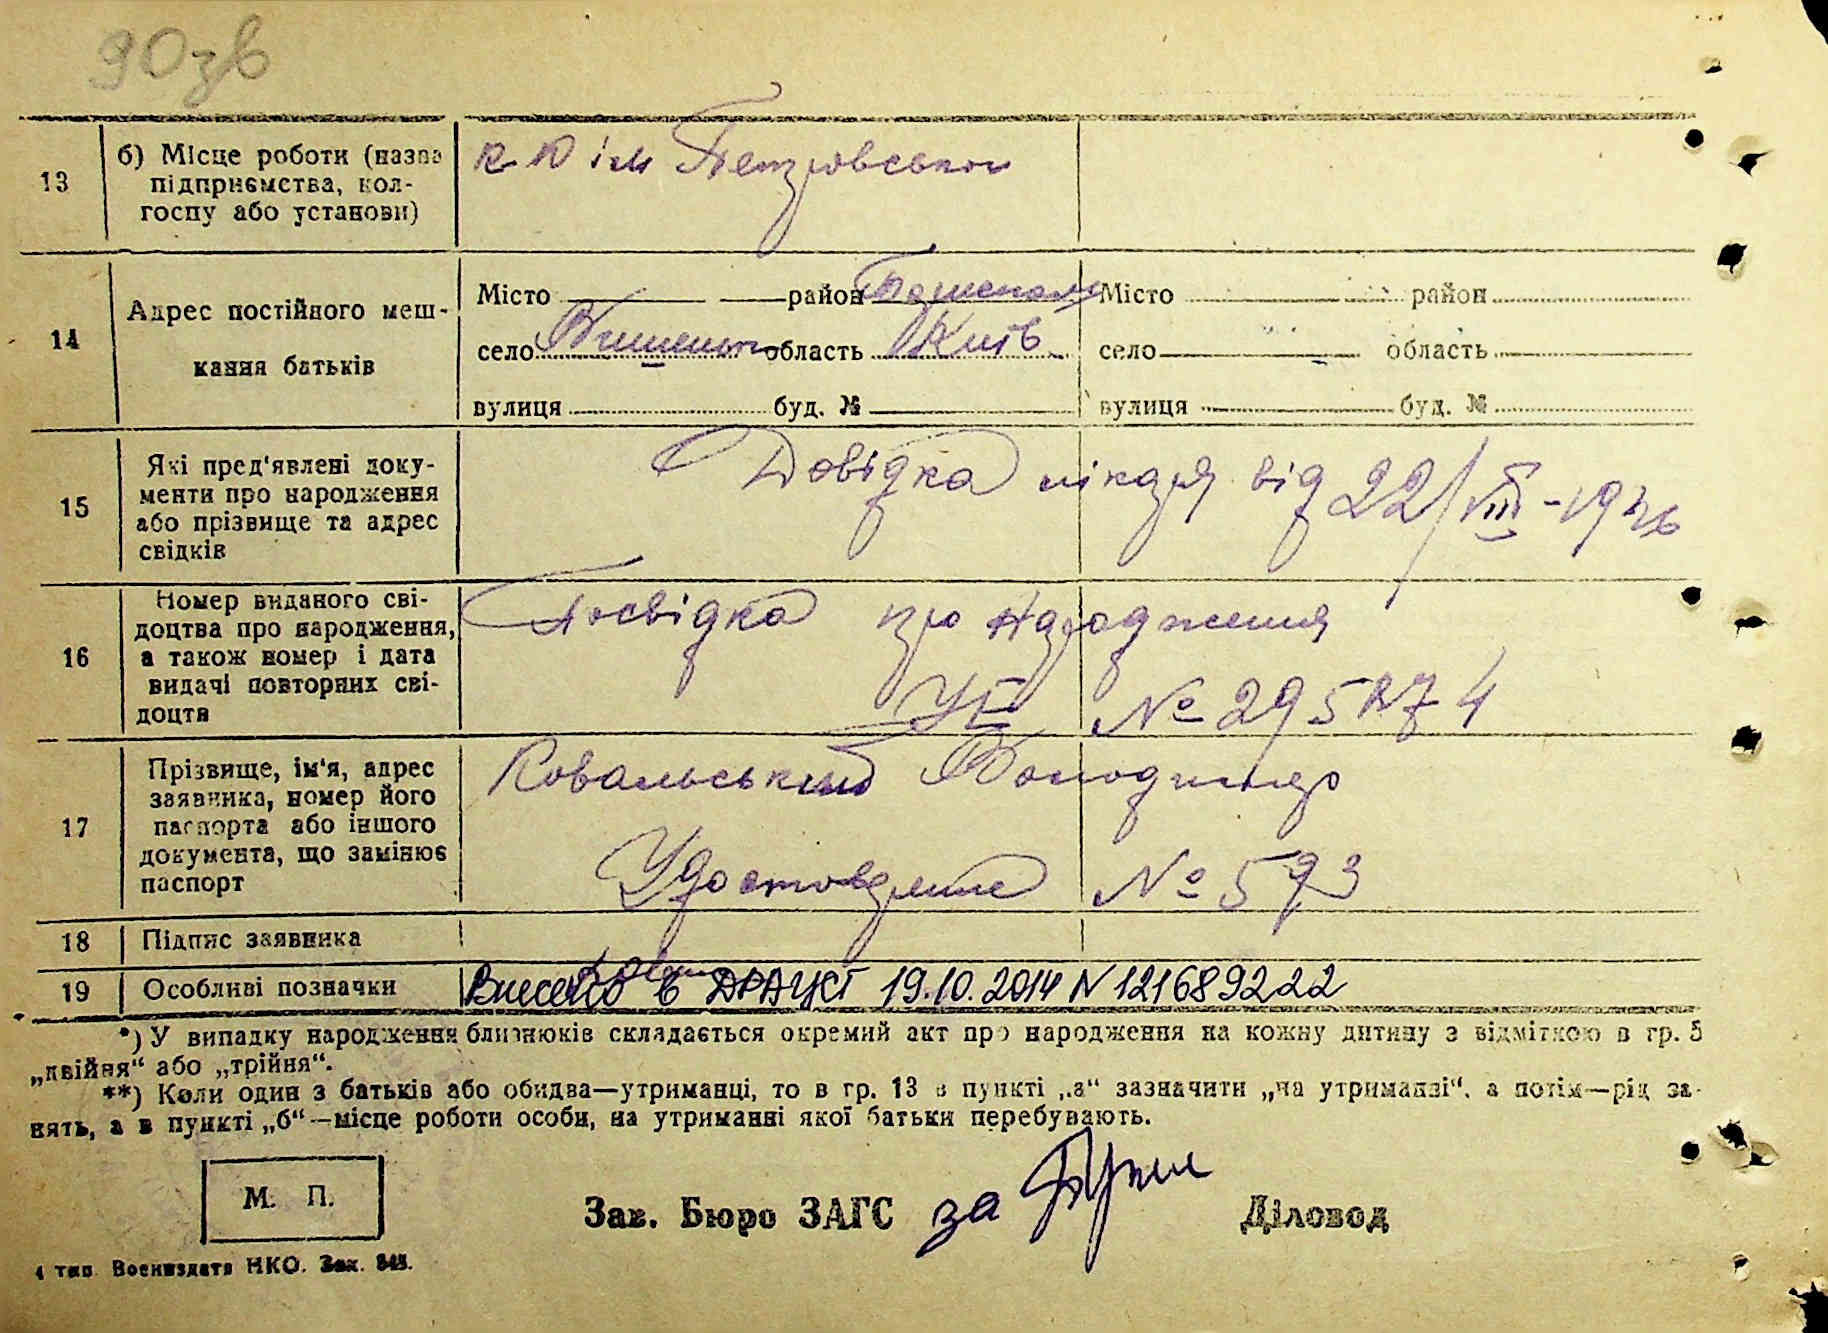 90зв
13 б) Місце роботи (назва підприємства, колгоспу або установи) к-п ім Петровського
14 Адрес постійного мешкання батьків
Місто район Місто район
село область Київ село область
вулиця буд. № вулиця буд. №
15 Які пред'явлені документи про народження або прізвище та адрес свідків Довідка лікаря від 22/VIII-1946
16 Номер виданого свідоцтва про народження, а також номер і дата видачі повторних свідоцтв Посвідка про народження
№ 295874
17 Прізвище, ім'я, адрес заявника, номер його паспорта або іншого документа, що замінює паспорт Ковальський Володимир
Удостовірение № 593
18 Підпис заявника
19 Особливі позначки Внесено в ДРАЦСГ 19.10.2014 N 121689222
*) У випадку народження близнюків складається окремий акт про народження на кожну дитину з відміткою в гр. 5
„двійня“ або „трійня“.
**) Коли один з батьків або обидва—утриманці, то в гр. 13 в пункті „а“ зазначити „на утриманні“, а потім—рід за-
нять, а в пункті „б“—місце роботи особи, на утриманні якої батьки перебувають.
М. П.
Зав. Бюро ЗАГС за Діловод
4 тип. Воениздата НКО. Зак. 848.